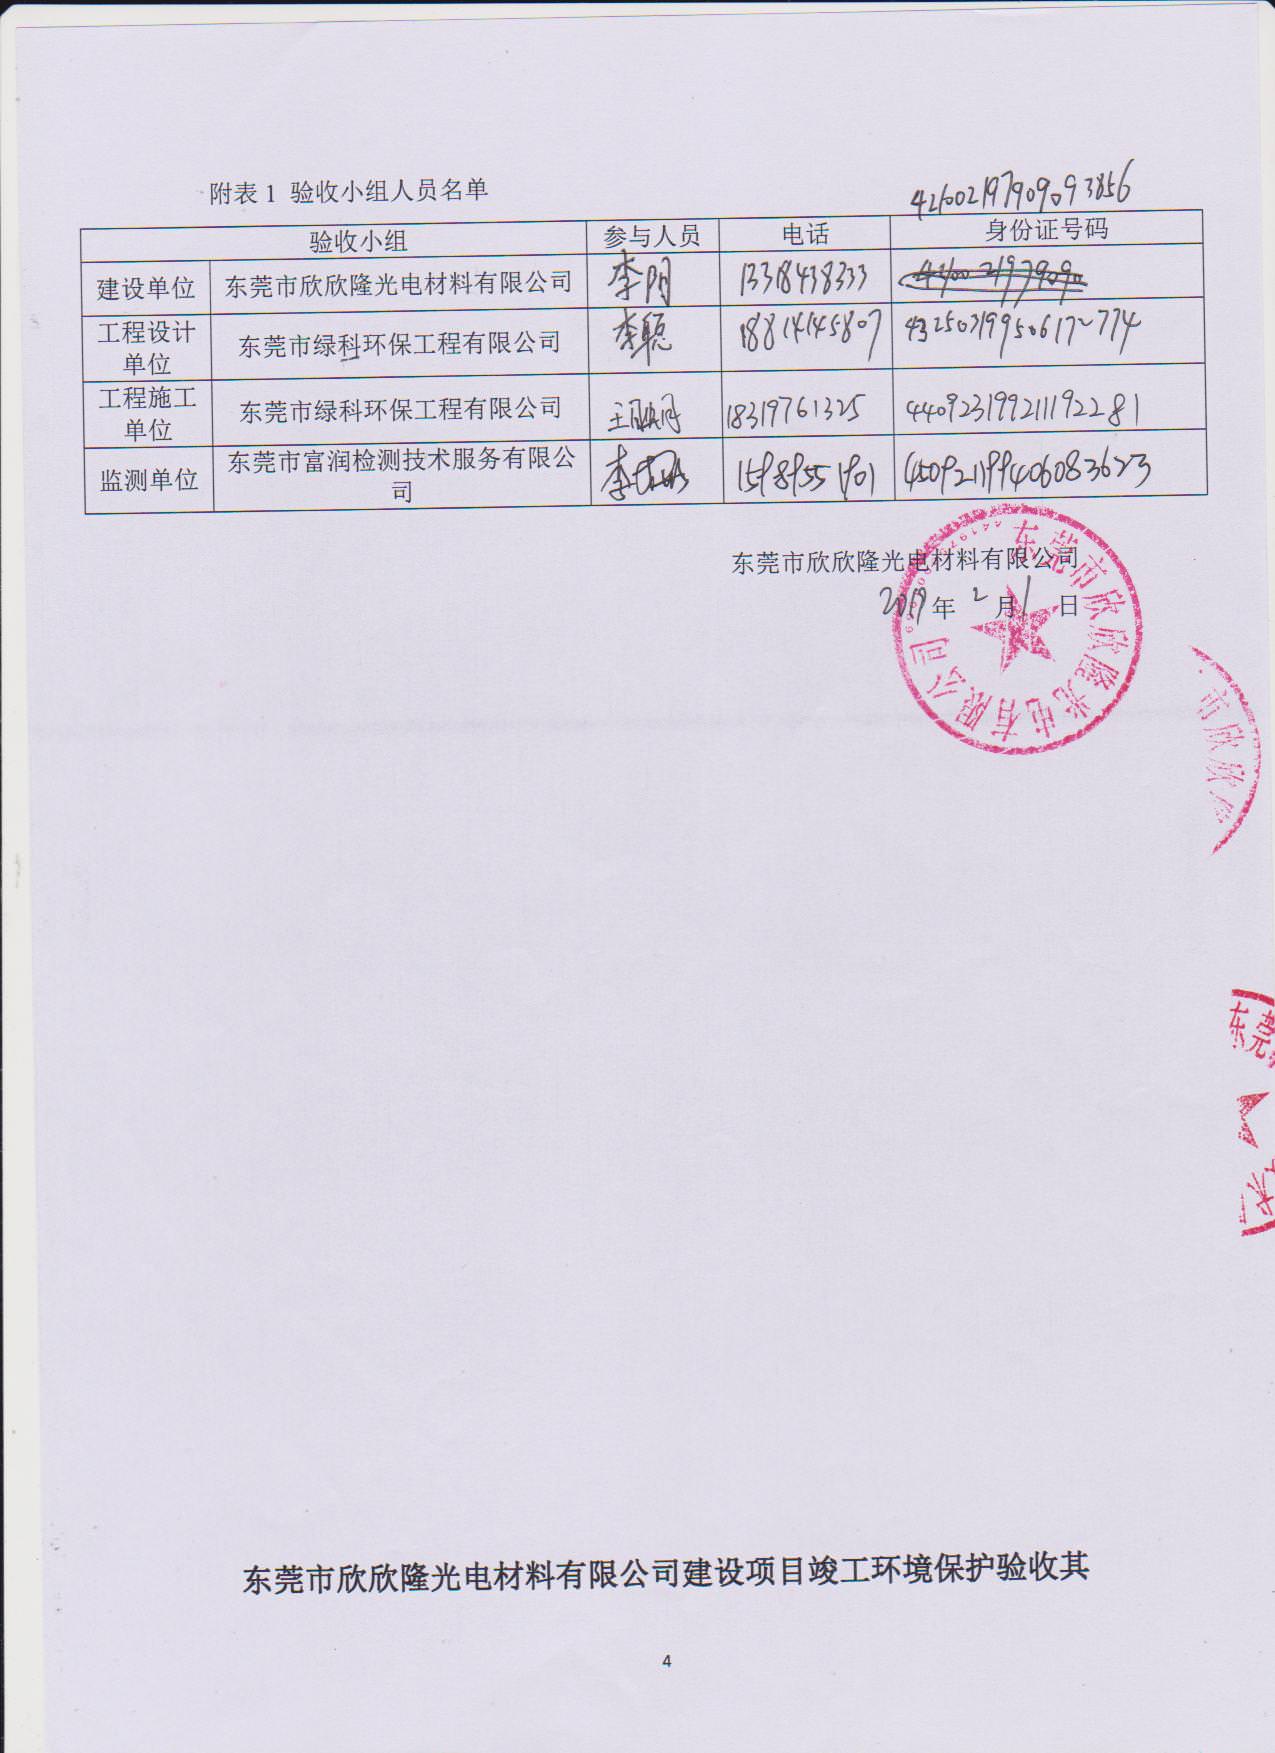 附表 1 验收小组人员名单
验收小组 参与人员 电话 身份证号码
建设单位 东莞市欣欣隆光电材料有限公司 13318438333
工程设计单位 东莞市绿科环保工程有限公司 李聪 18814145807
工程施工单位 东莞市绿科环保工程有限公司 18319761325 440923199211192281
监测单位 东莞市富润检测技术服务有限公司 15989551901 450921199406083623
东莞市欣欣隆光电材料有限公司
2019 年 2 月 1 日
东莞市欣欣隆光电有限公司
市欣欣
东莞
东莞市欣欣隆光电材料有限公司建设项目竣工环境保护验收其
4